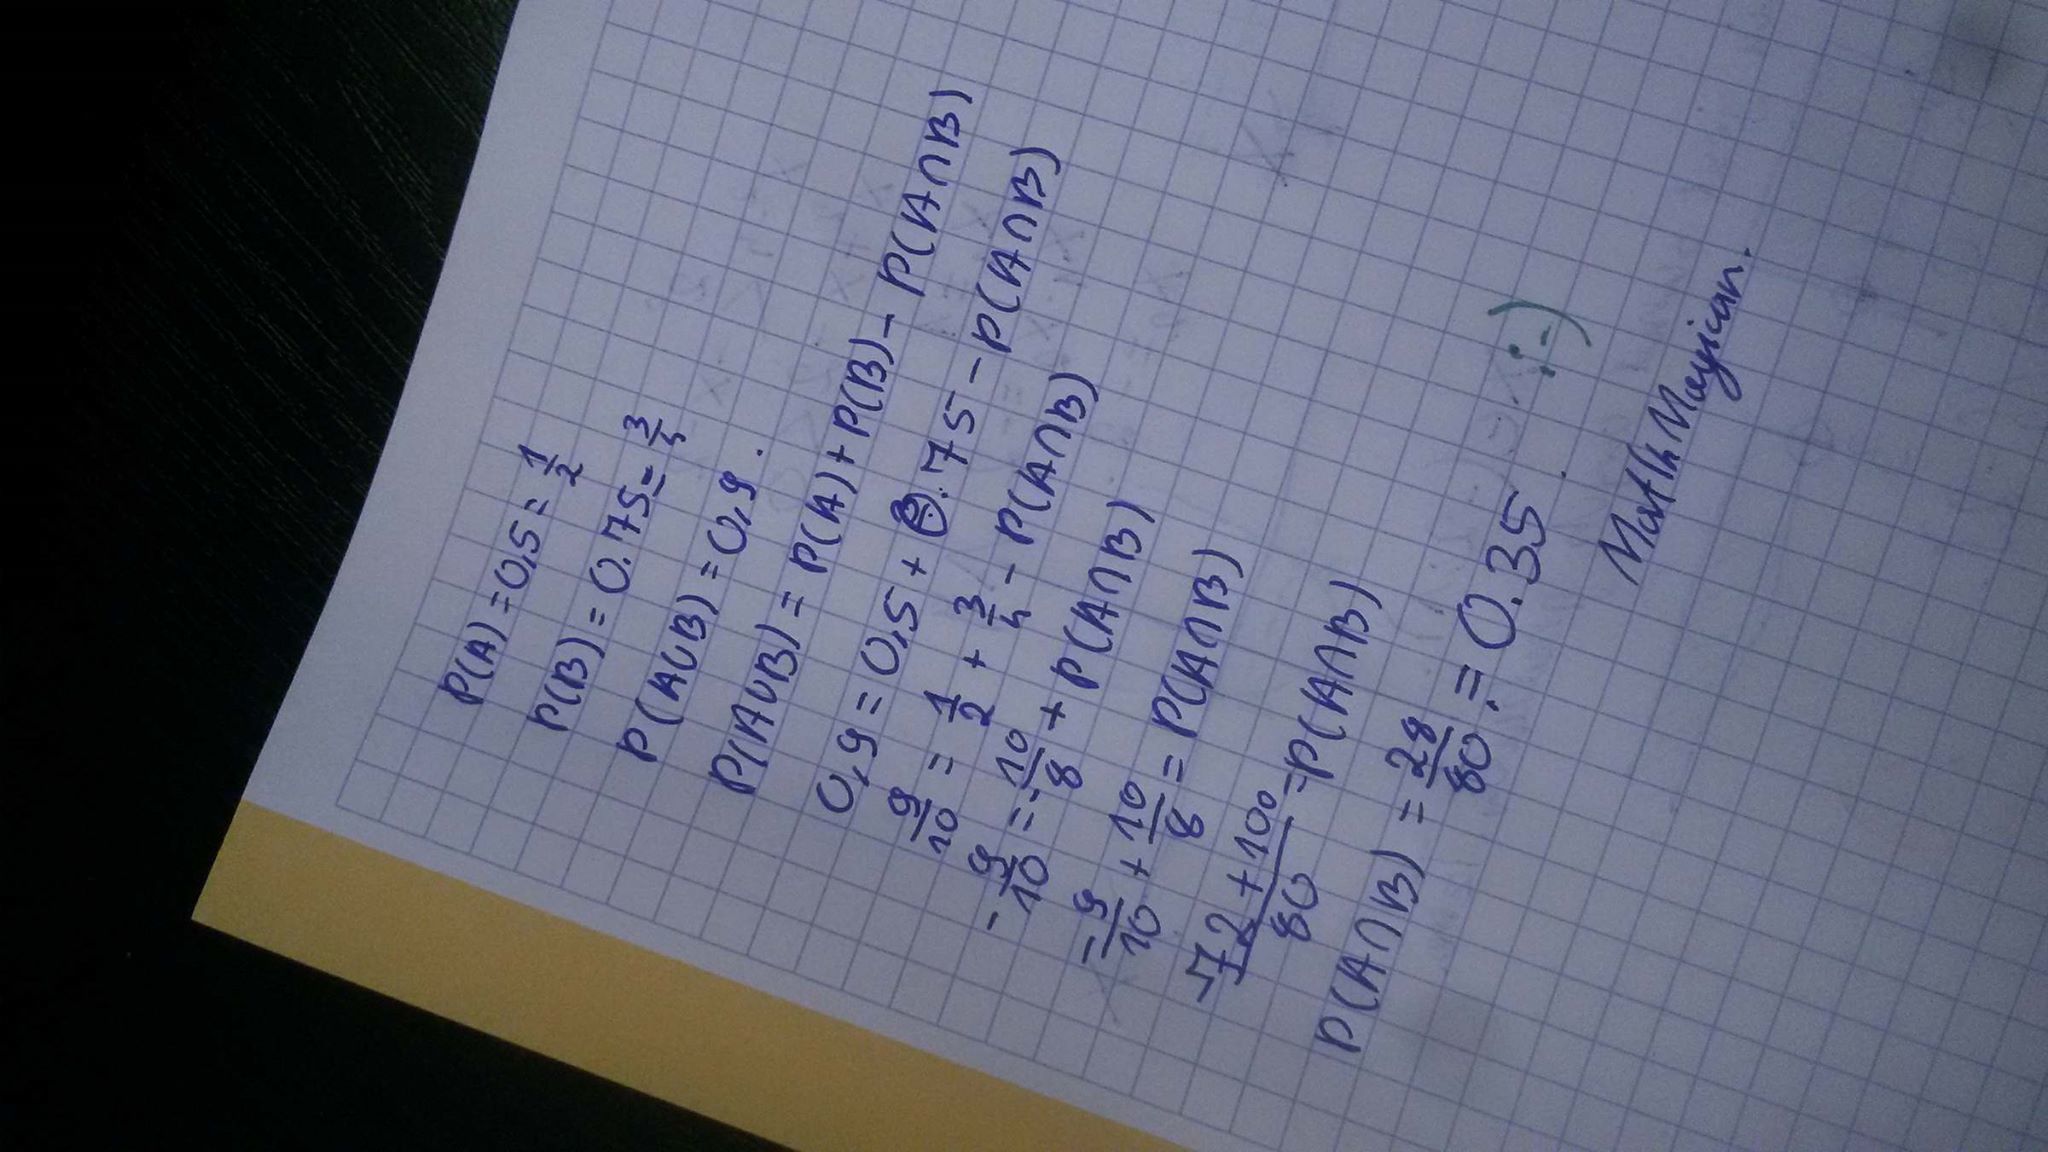 P(A) = 0,5 = 1/2
P(B) = 0.75 = 3/4
P(A∪B) = 0,9.
P(A∪B) = P(A) + P(B) - P(A∩B)
0,9 = 0,5 + 0.75 - P(A∩B)
9/10 = 1/2 + 3/4 - P(A∩B)
- 9/10 = - 10/8 + P(A∩B)
- 9/10 + 10/8 = P(A∩B)
-72 + 100/80 = P(A∩B)
P(A∩B) = 28/80 := 0.35
:-)
Math Magician.